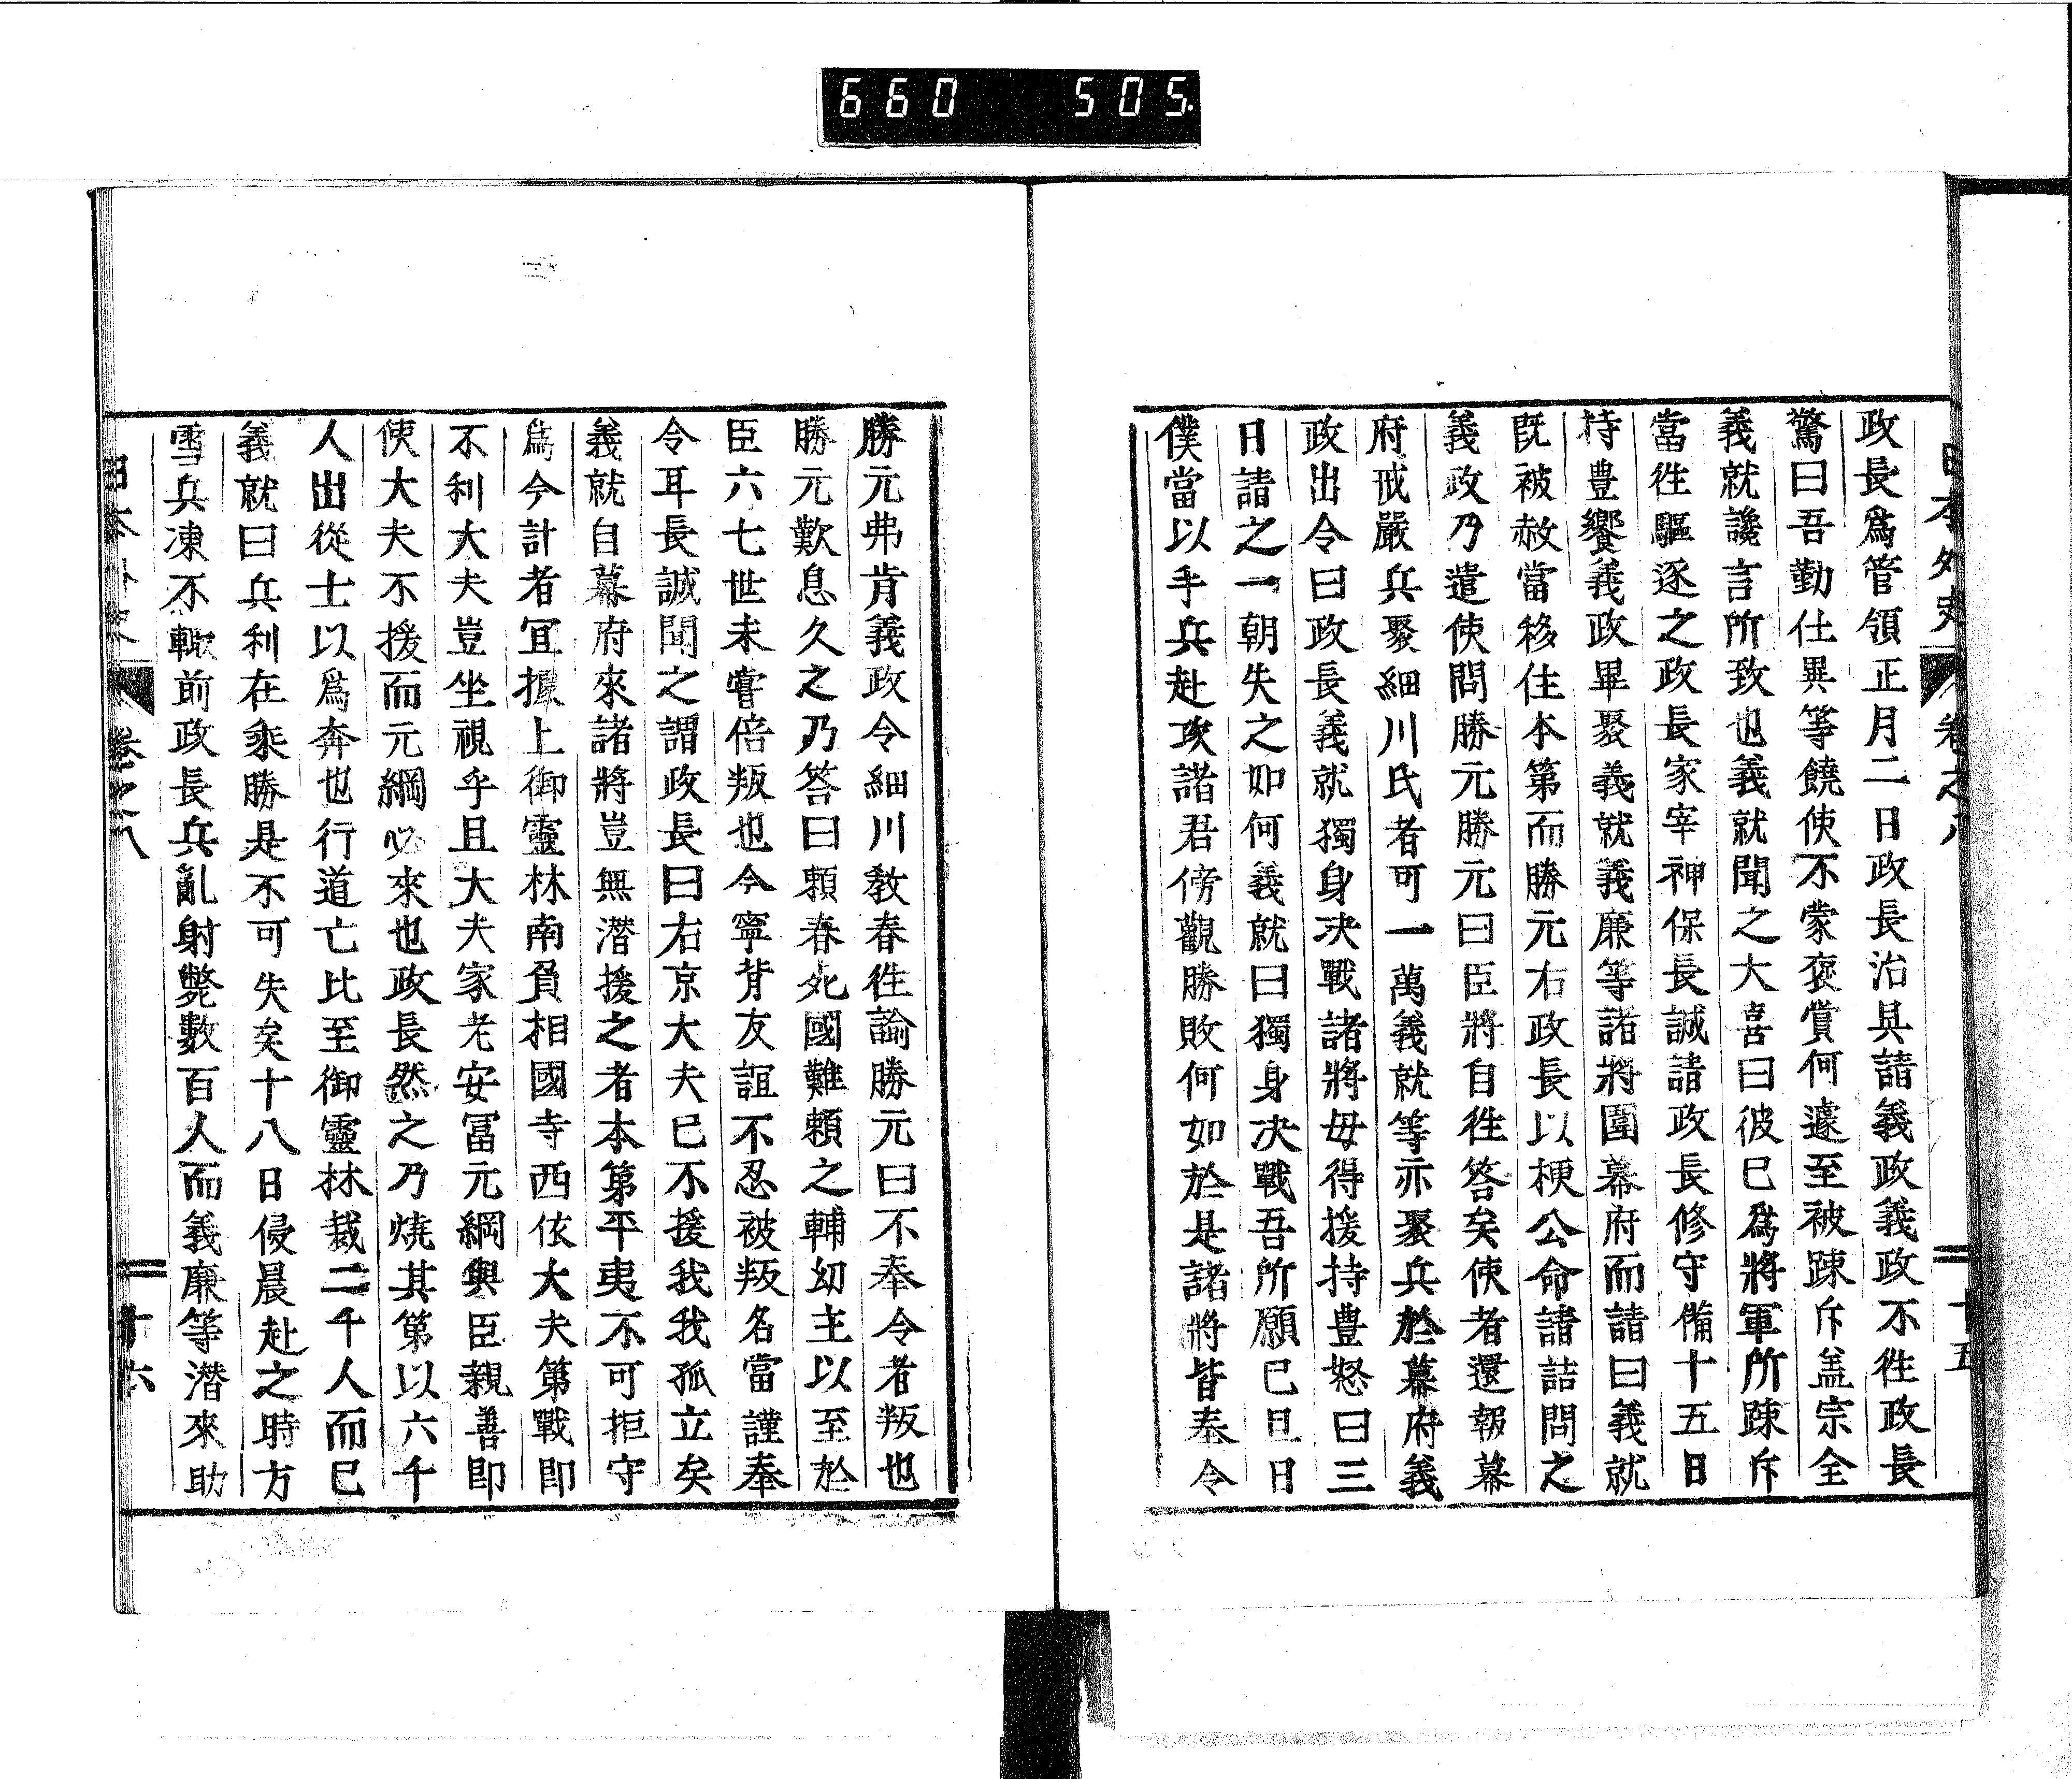 660 505.
日本外史 卷之八 十五
政長爲管領正月二日政長治具請義政義政不往政長
驚曰吾勤仕異等饒使不蒙褒賞何遽至被踈斥盖宗全
義就讒言所致也義就聞之大喜曰彼已爲將軍所踈斥
當往驅逐之政長家宰神保長誠請政長修守備十五日
持豊饗義政畢聚義就義廉等諸將圍幕府而請曰義就
既被赦當移住本第而勝元右政長以梗公命請詰問之
義政乃遣使問勝元勝元曰臣將自往答矣使者還報幕
府戒嚴兵聚細川氏者可一萬義就等亦聚兵於幕府義
政出令曰政長義就獨身决戰諸將毋得援持豊怒曰三
日請之一朝失之如何義就曰獨身决戰吾所願已旦日
僕當以手兵赴攻諸君傍觀勝敗何如於是諸將皆奉令
勝元弗肯義政令細川敎春往諭勝元曰不奉令者叛也
勝元歎息久之乃答曰頼春死國難頼之輔幼主以至於
臣六七世未嘗倍叛也今寧背友誼不忍被叛名當謹奉
令耳長誠聞之謂政長曰右京大夫已不援我我孤立矣
義就自幕府來諸將豈無潜援之者本第平夷不可拒守
爲今計者冝據上御靈林南負相國寺西依大夫第戰即
不利大夫豈坐視乎且大夫家老安冨元綱與臣親善即
使大夫不援而元綱必來也政長然之乃燒其第以六千
人出從士以爲奔也行道亡比至御靈林裁二千人而已
義就曰兵利在乘勝是不可失矣十八日侵晨赴之時方
雪兵凍不輙前政長兵亂射斃數百人而義廉等潜來助
日本外史 卷之八 十六